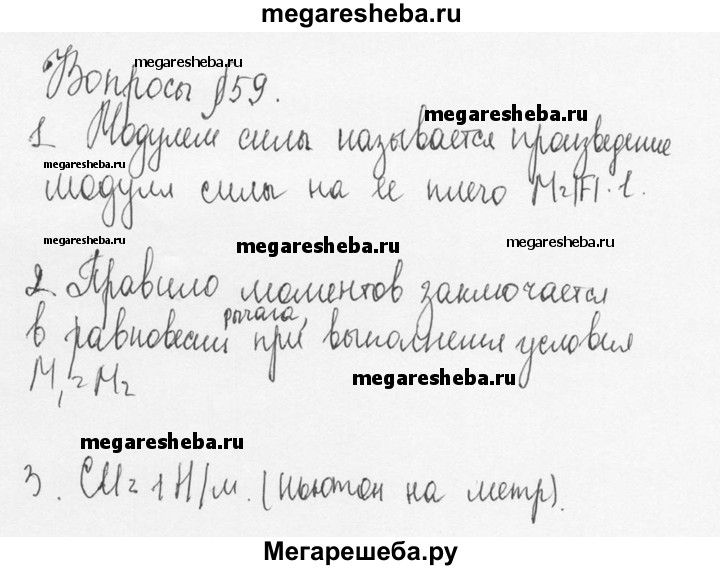 megaresheba.ru
megaresheba.ru
Вопросы §59.
megaresheba.ru
megaresheba.ru
1 Модулем силы называется произведение
megaresheba.ru
модуля силы на ее плечо M=|F|·l.
megaresheba.ru
megaresheba.ru
megaresheba.ru
2. Правило моментов заключается
в равновесии рычага, при выполнения условия
M₁=M₂
megaresheba.ru
megaresheba.ru
3. СИ=1Н/м. (Ньютон на метр).
Мегарешеба.ру